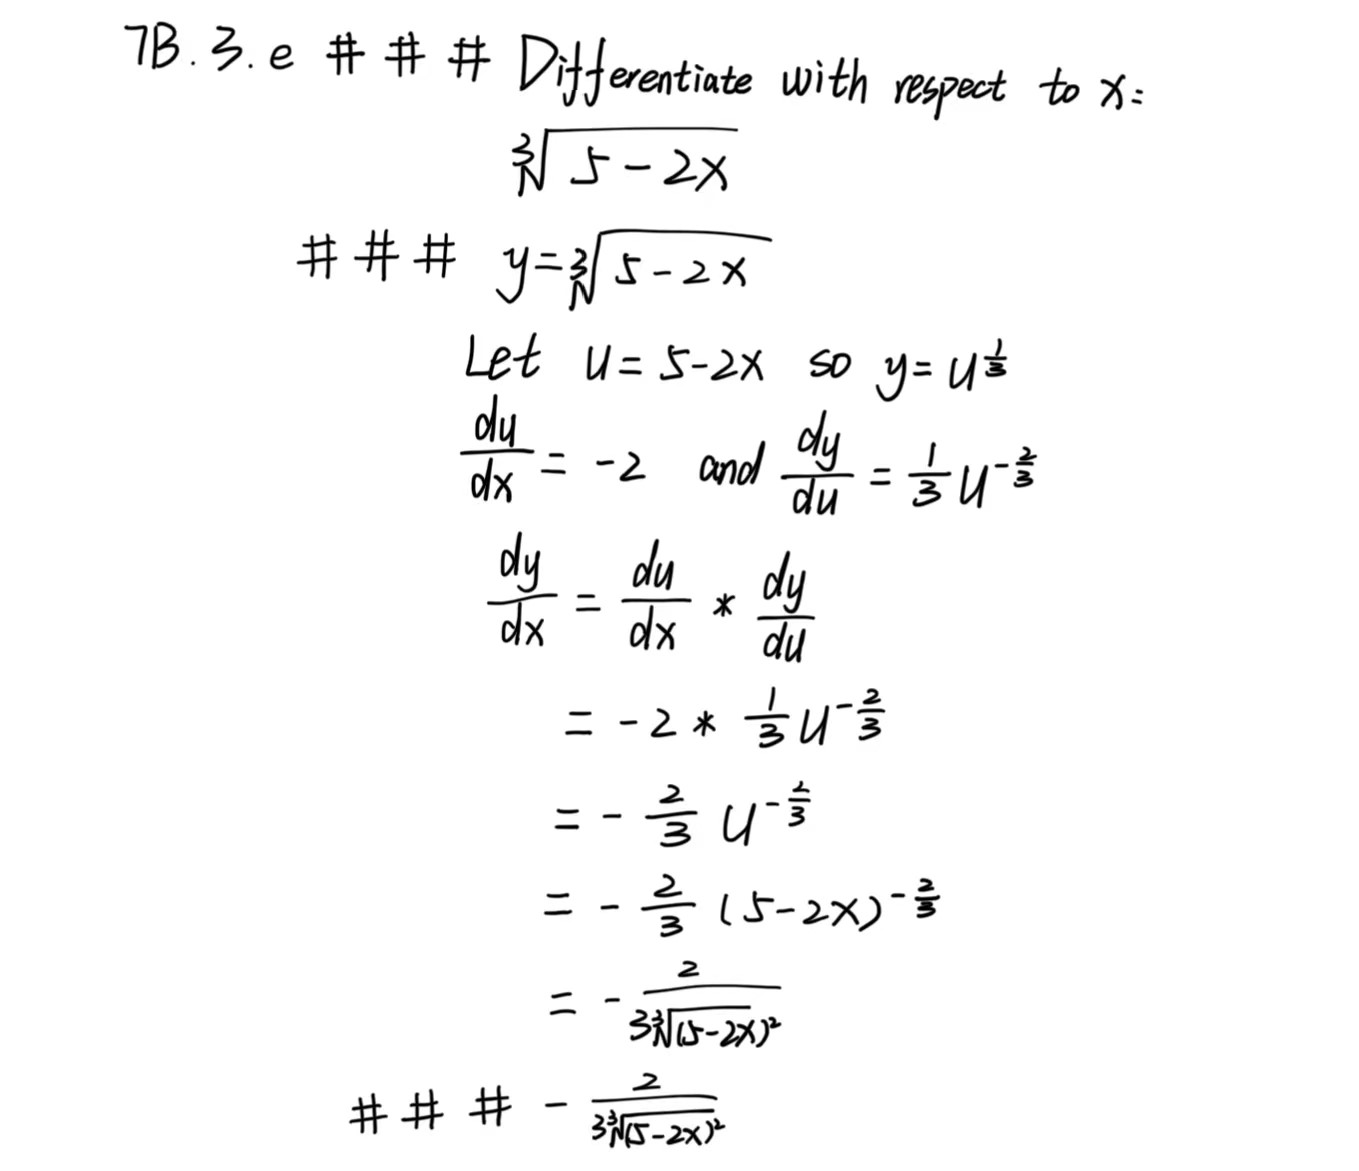 7B.3.e # # # Differentiate with respect to x:
∛(5-2x)
# # # y=∛(5-2x)
Let u=5-2x so y=u^(1/3)
du/dx = -2 and dy/du = 1/3 u^(-2/3)
dy/dx = du/dx * dy/du
= -2 * 1/3 u^(-2/3)
= - 2/3 u^(-2/3)
= - 2/3 (5-2x)^(-2/3)
= - 2/(3∛(5-2x)²)
# # # - 2/(3∛(5-2x)²)